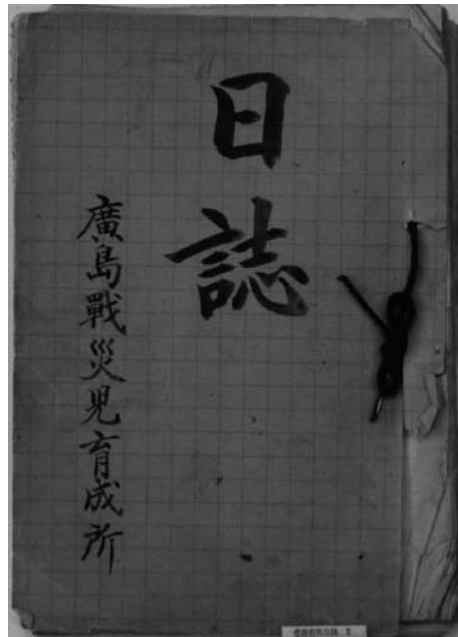 日誌
廣島戰災児育成所